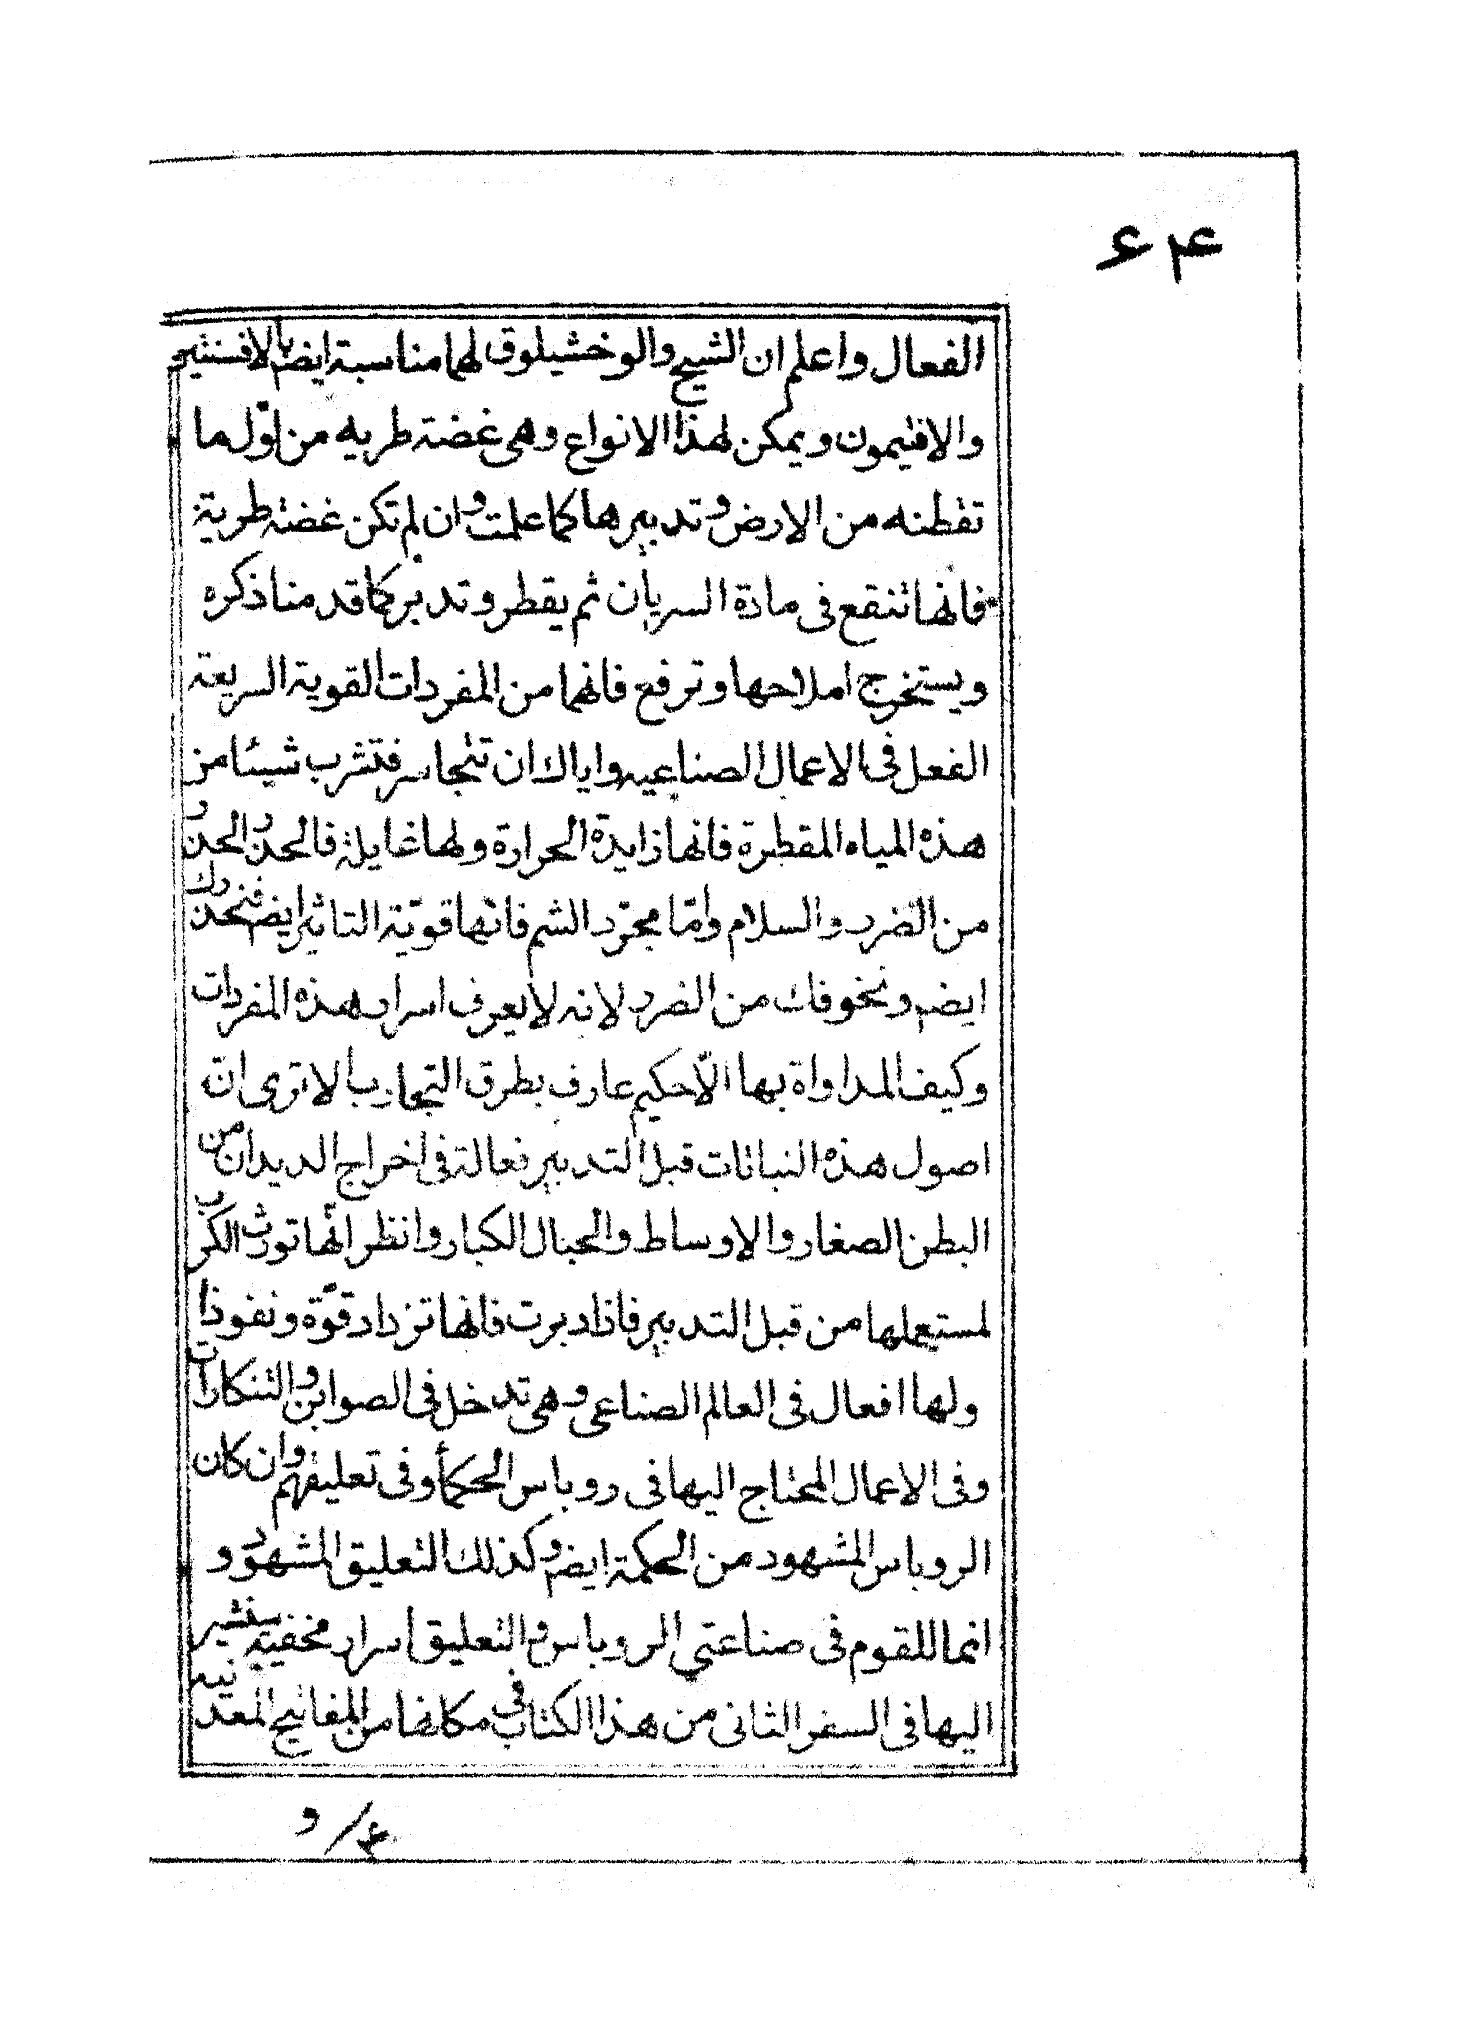 ۶۴
الفعال واعلم ان الشيح والوخشيلوق لهما مناسبة ايضم بالافسنتين
والافتيمون ويمكن لهذا الانواع وهى غضته طريه من اوّل ما
تفطنه من الارض وتدبيرها كما علمت وان لم تكن غضته طرية
فانها تنقع فى مادة السريان ثم يقطر وتدبر كما قد منا ذكره
ويستخرج املاحها وترفع فانهما من المفردات القوية السريعة
الفعل فى الاعمال الصناعيه واياك ان تتجاسر فتشرب شيئا من
هذه المياه المقطرة فانها زايدة الحرارة ولها غايلة فالحذر الحذر
من الضرر والسلام وامّا مجرّد الشم فانّها قويّة التاثير ايضم فنحذرك
ايضم ونخوفك من الضرر لانه لا يعرف اسرار هذه المفردات
وكيف المداواة بها الّا حكيم عارف بطرق التجارب الا ترى انّ
اصول هذه النباتات قبل التدبير فعالة فى اخراج الديدان من
البطن الصغار والاوساط والحبال الكبار وانظر انّها تورث الكرب
لمستعملها من قبل التدبير فاذا دبرت فانها تزداد قوّة ونفوذا
ولها افعال فى العالم الصناعى وهى تدخل فى الصوابن والتنكارات
وفى الاعمال المحتاج اليها فى روباس الحكمأ وفى تعليقهم وان كان
الروباس المشهود من الحكمة ايضم وكذلك التعليق المشهور و
انما للقوم فى صناعتي الروباس والتعليق اسرار مخفية سنشير
اليها فى السفر الثانى من هذا الكتاب فى مكانها من المفاتيح المعدنيه